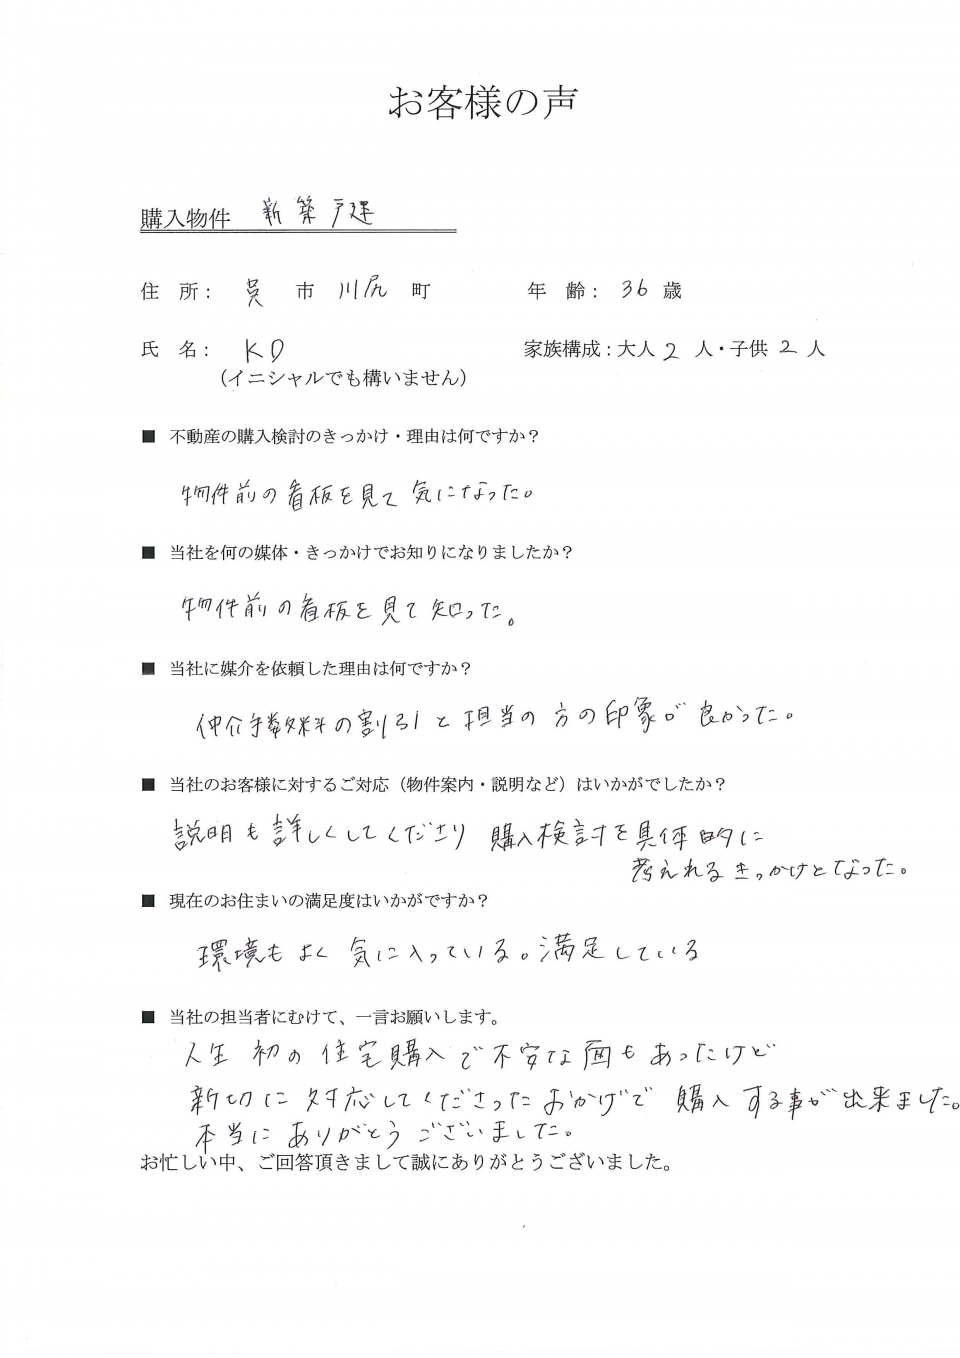 お客様の声
購入物件 新築戸建
住 所： 呉 市 川尻 町 年 齢： 36 歳
氏 名： KD 家族構成：大人 2 人・子供 2 人
（イニシャルでも構いません）
■ 不動産の購入検討のきっかけ・理由は何ですか？
物件前の看板を見て気になった。
■ 当社を何の媒体・きっかけでお知りになりましたか？
物件前の看板を見て知った。
■ 当社に媒介を依頼した理由は何ですか？
仲介手数料の割引と担当の方の印象が良かった。
■ 当社のお客様に対するご対応（物件案内・説明など）はいかがでしたか？
説明も詳しくしてくださり 購入検討を具体的に
考えれるきっかけとなった。
■ 現在のお住まいの満足度はいかがですか？
環境もよく気に入っている。満足している
■ 当社の担当者にむけて、一言お願いします。
人生初の住宅購入で不安な面もあったけど
新切に対応してくださったおかげで購入する事が出来ました。
本当にありがとうございました。
お忙しい中、ご回答頂きまして誠にありがとうございました。